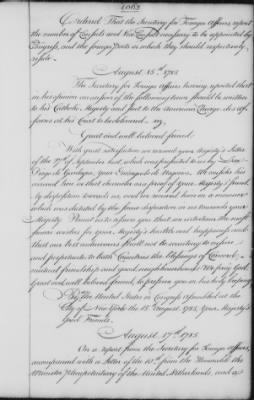 1062
Ordered That the Secretary for Foreign Affairs report
the number of Consuls and Vice Consuls necessary to be appointed by
Congress, and the foreign Ports in which they should respectively
reside.
August 15th 1785
The Secretary for Foreign Affairs having reported that
in his opinion a in the following terms should be written
to his Catholic Majesty and sent to the American Chargé des Af-
faires at his Court to be delivered. viz.
Great and well beloved friend.
With great satisfaction we received your Majesty's Letter
of the of September last, which was presented to us by Don
Diego de Gardoqui, your Encargado de Negocios. We consider his
mission and in that character as a proof of your Majesty's friend-
ly disposition towards us, and we received him in a manner
which was dictated by the same disposition in us towards your
Majesty. Permit us to assure you that we entertain the most
sincere wishes for your Majesty's health and happiness and
that our best endeavours shall not be wanting to insure
and perpetuate to both Countries the blessings of Commerce
mutual friendship and good neighbourhood. We pray God,
Great and well beloved friend, to preserve you in his holy keeping
By the United States in Congress assembled at the
City of New York the 15 August 1785, Your Majesty's
Good Friends.
August 17th 1785
On a report from the Secretary for foreign Affairs,
accompanied with a Letter of the 10th from the Honorable the
Minister Plenipotentiary of the United Netherlands, and a